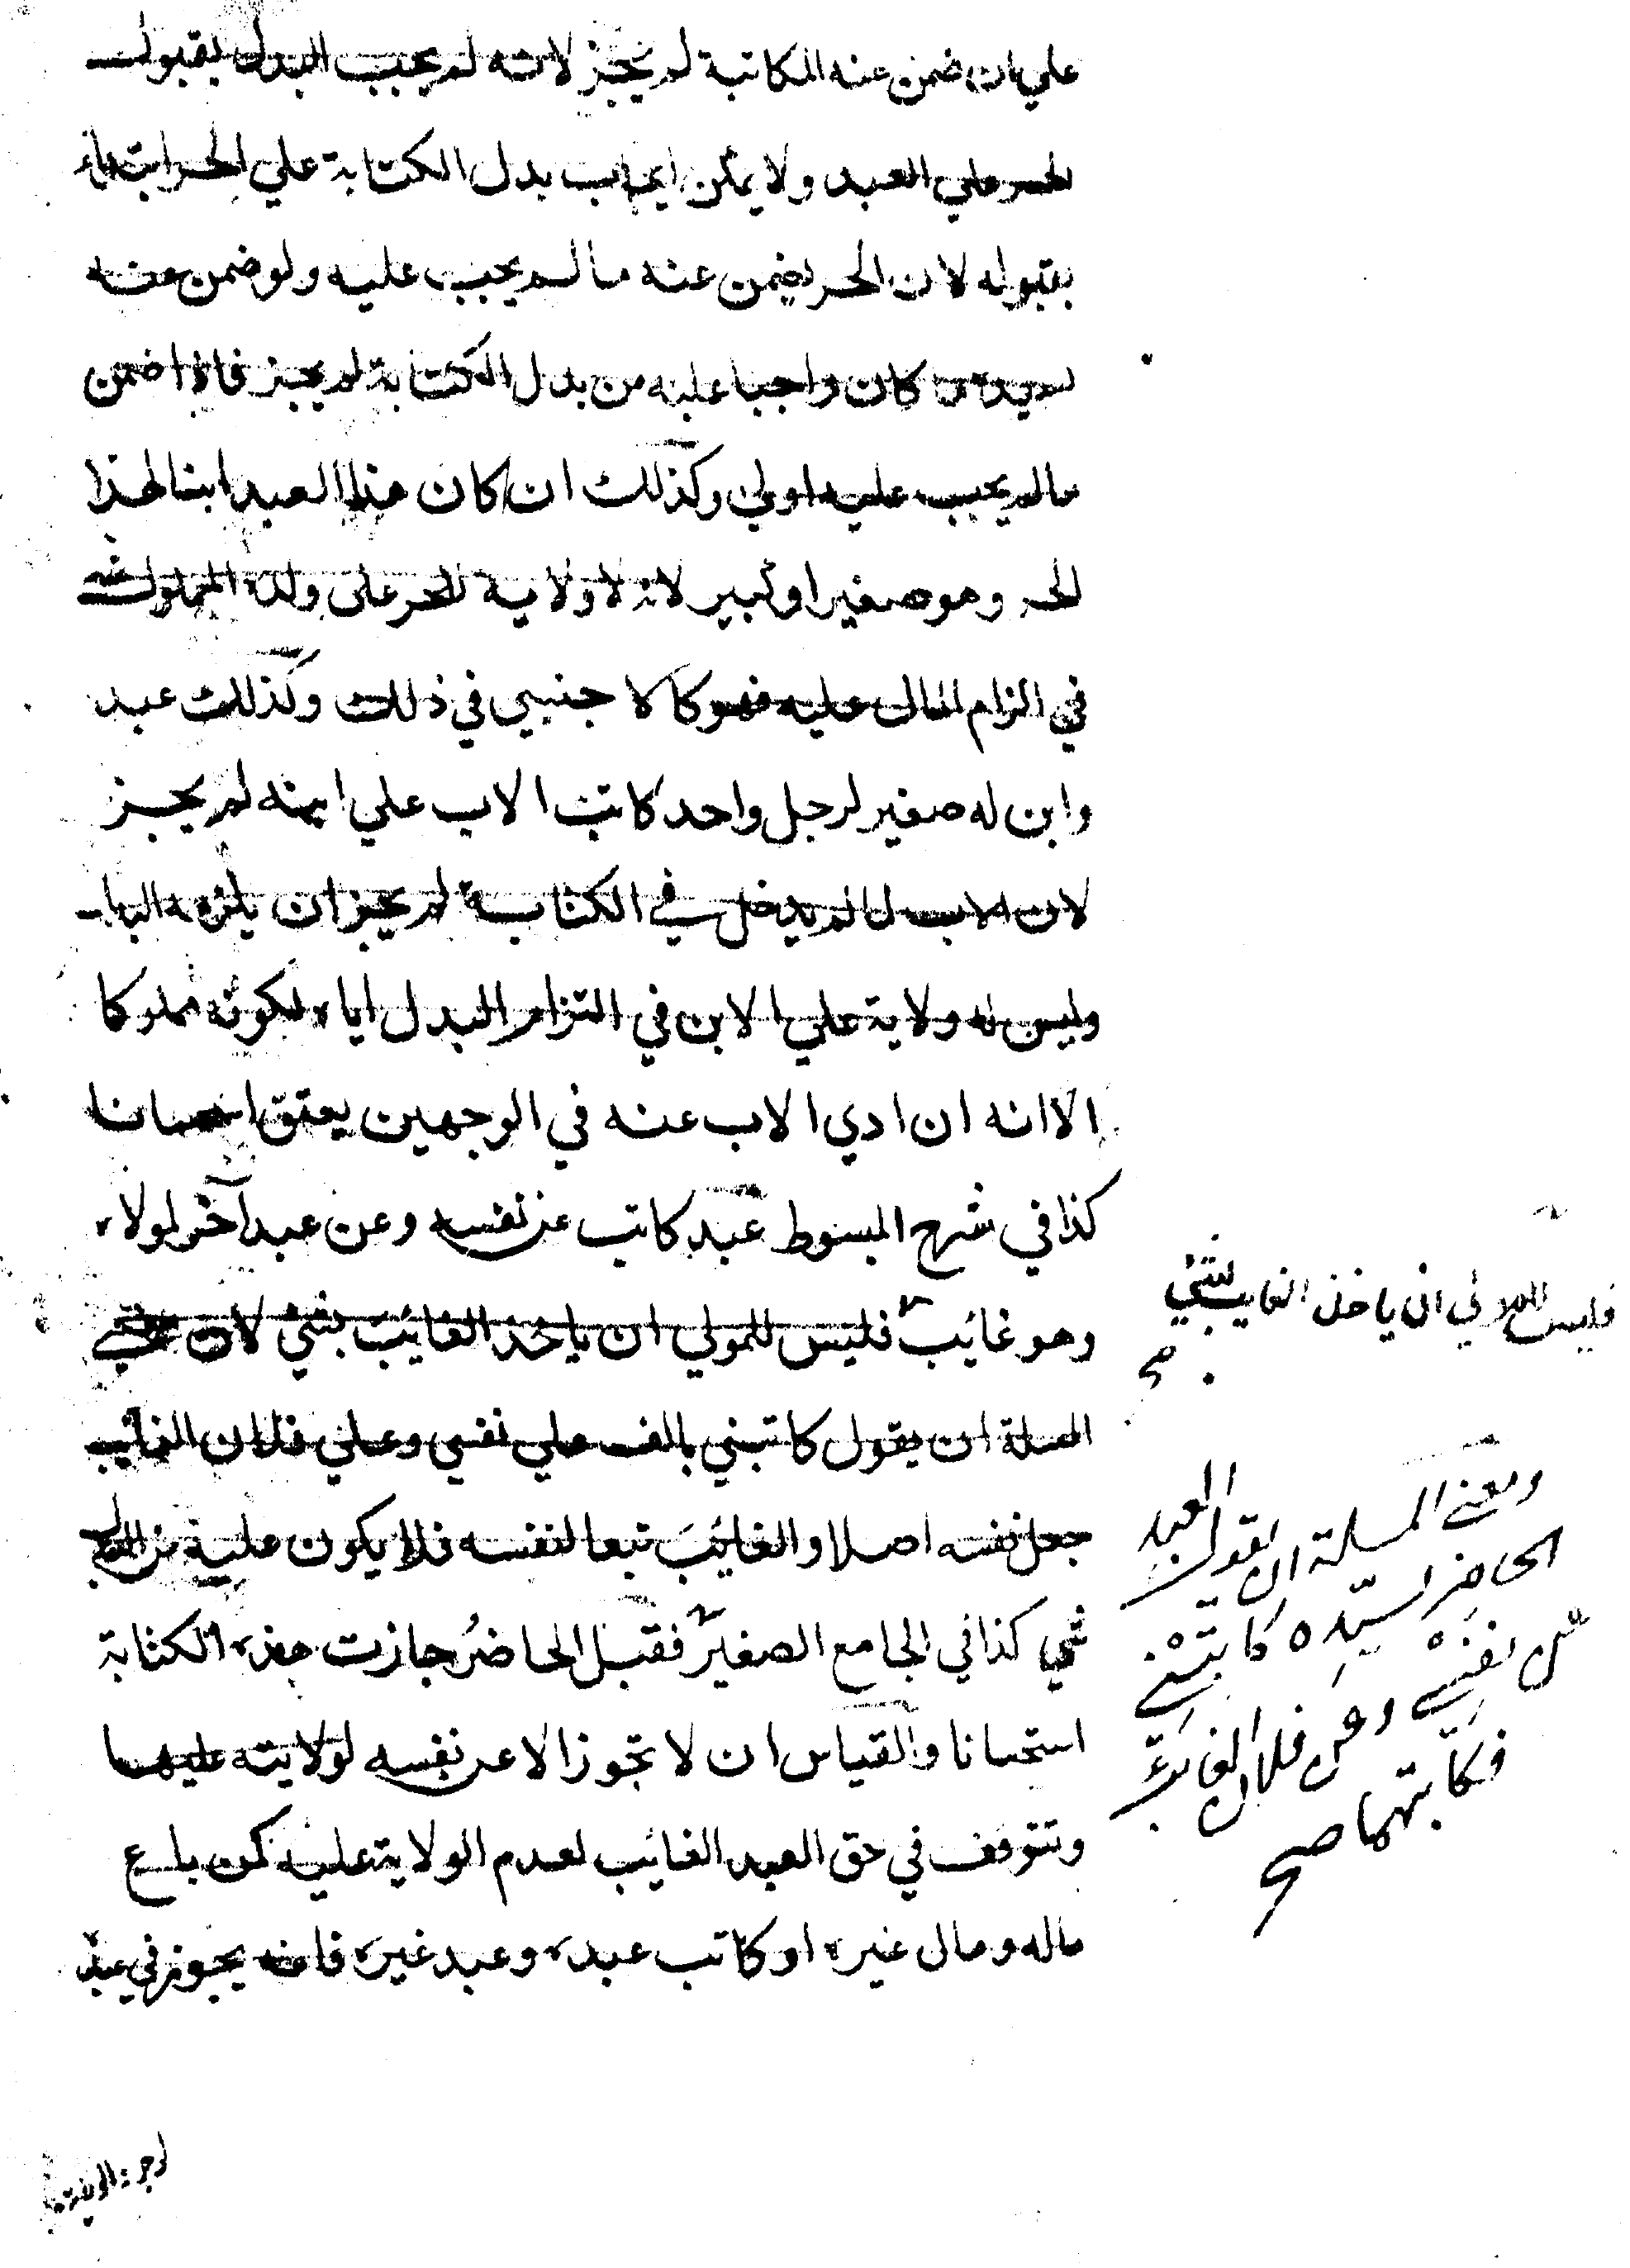 علي ان ضمن عنه المكاتبة لم يجز لانه لم يجب البدل بقبول
الحر علي العبد ولا يمكن ايجاب بدل الكتابة علي الحر ابتداء
بقبوله لان الحر يضمن عنه ما لم يجب عليه ولو ضمن عنه
لسيده ما كان واجبا عليه من بدل الكتابة لم يجز فاذا ضمن
ما لم يجب عليه اولي وكذلك ان كان هذا العبد ابنا لهذا
الحر وهو صغير او كبير لانه لا ولاية للحر علي ولده المملوك
في الزام المال عليه فهو كالاجنبي في ذلك وكذلك عبد
وابن له صغير لرجل واحد كاتب الاب علي ابنه لم يجز
لان الاب لما لم يدخل في الكتابة لم يجز ان يلزمه البدل
وليس له ولاية علي الابن في التزام البدل اياه لكونه مملوكا
الا انه ان ادي الاب عنه في الوجهين يعتق استحسانا
كذا في شرح المبسوط عبد كاتب عن نفسه وعن عبد آخر لمولاه
وهو غائب فليس للمولي ان ياخذ الغائب بشئ لان معني
المسلة ان يقول كاتبني بالف علي نفسي وعلي فلان الغائب
جعل نفسه اصلا والغائب تبعا لنفسه فلا يكون عليه من البدل
شي كذا في الجامع الصغير فقبل الحاضر جازت هذه الكتابة
استحسانا والقياس ان لا تجوز الا عن نفسه لولايته عليها
وتتوقف في حق العبد الغائب لعدم الولاية عليه كمن باع
ماله ومال غيره او كاتب عبده وعبد غيره فانه يجوز في عبده
فليس للمولي ان ياخذ الغايب بشئ
صح
ومعني المسلة ان يقول العبد
الحاضر لسيده كاتبني
عن نفسي وعن فلان الغائب
فكاتبهما صح